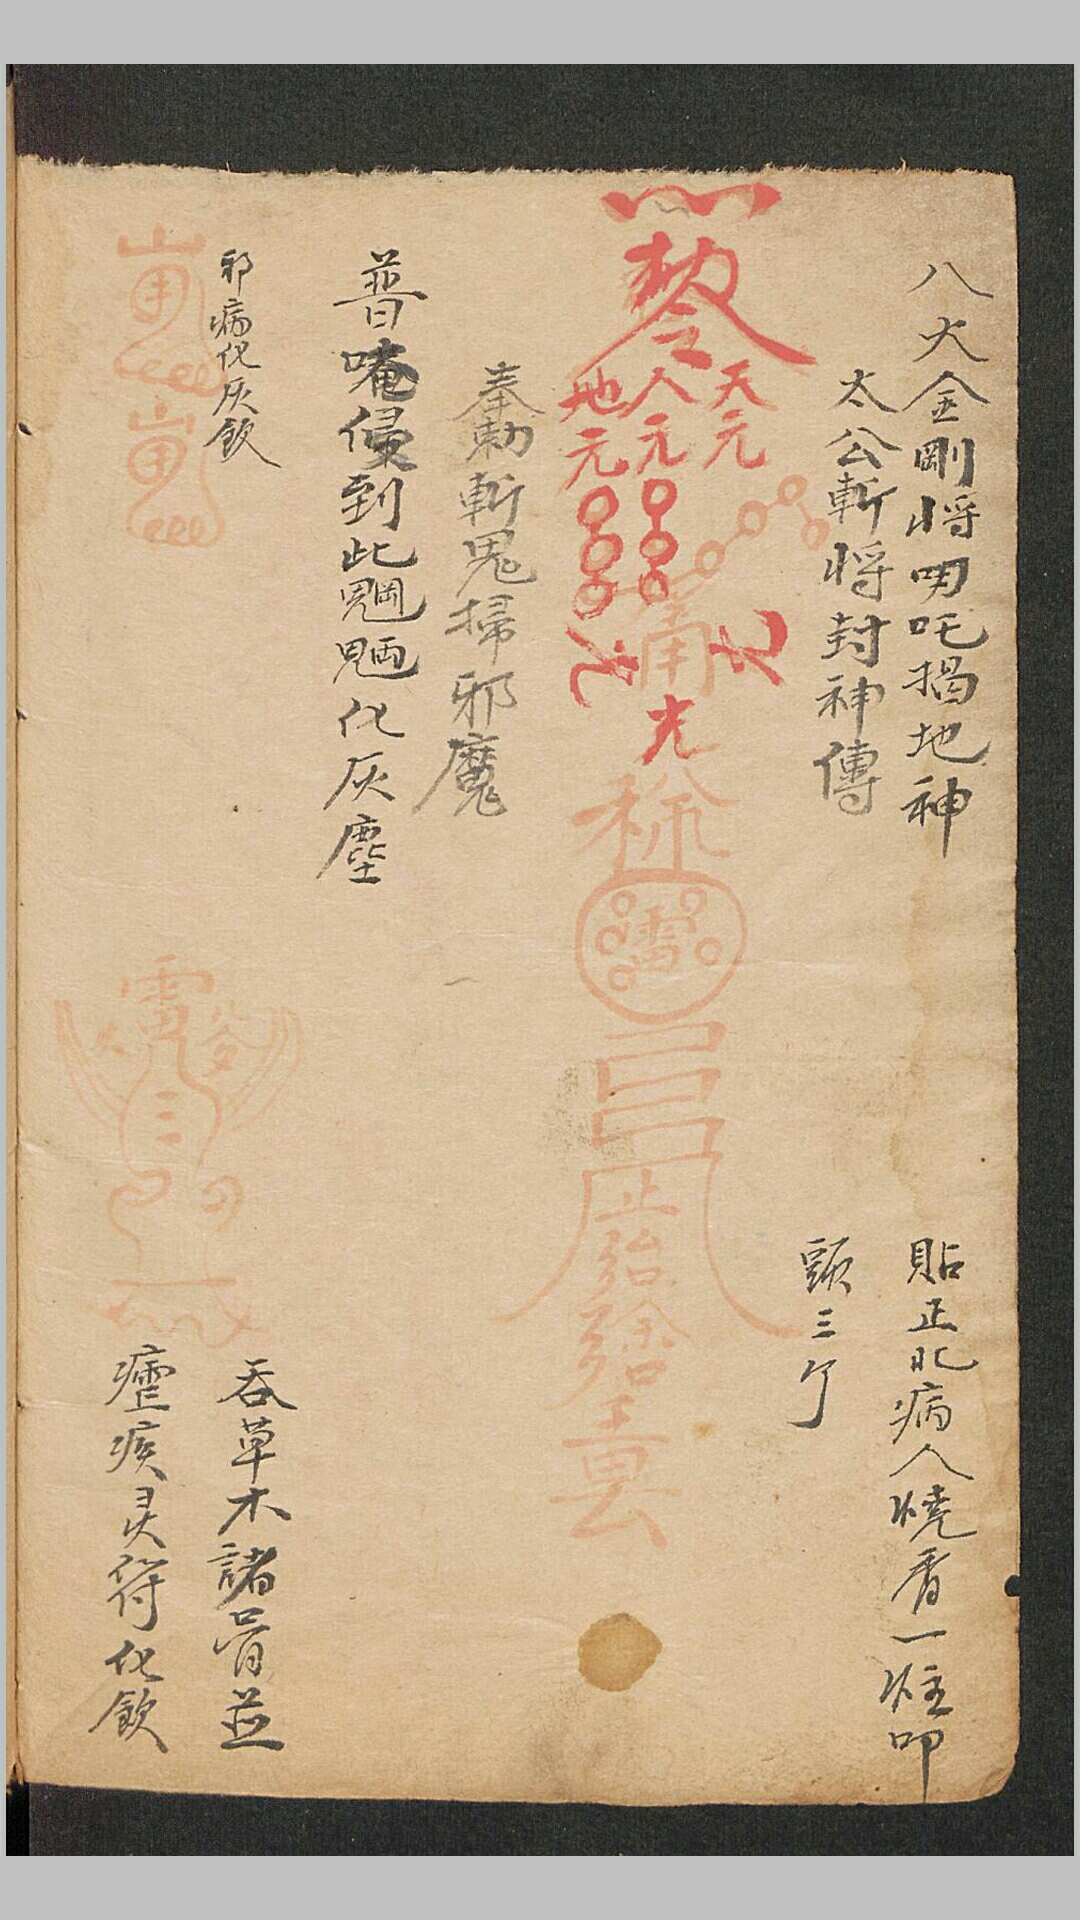 八大金剛將叨吒揭地神
太公斬將封神傳
貼正北病人燒香一炷叩
頭三个
敕令
天元
人元
地元
光
雷
奉勅斬鬼掃邪魔
普唵侵到此魍魎化灰塵
邪病化灰飲
雷
吞草木諸骨並
瘧疾灵符化飲